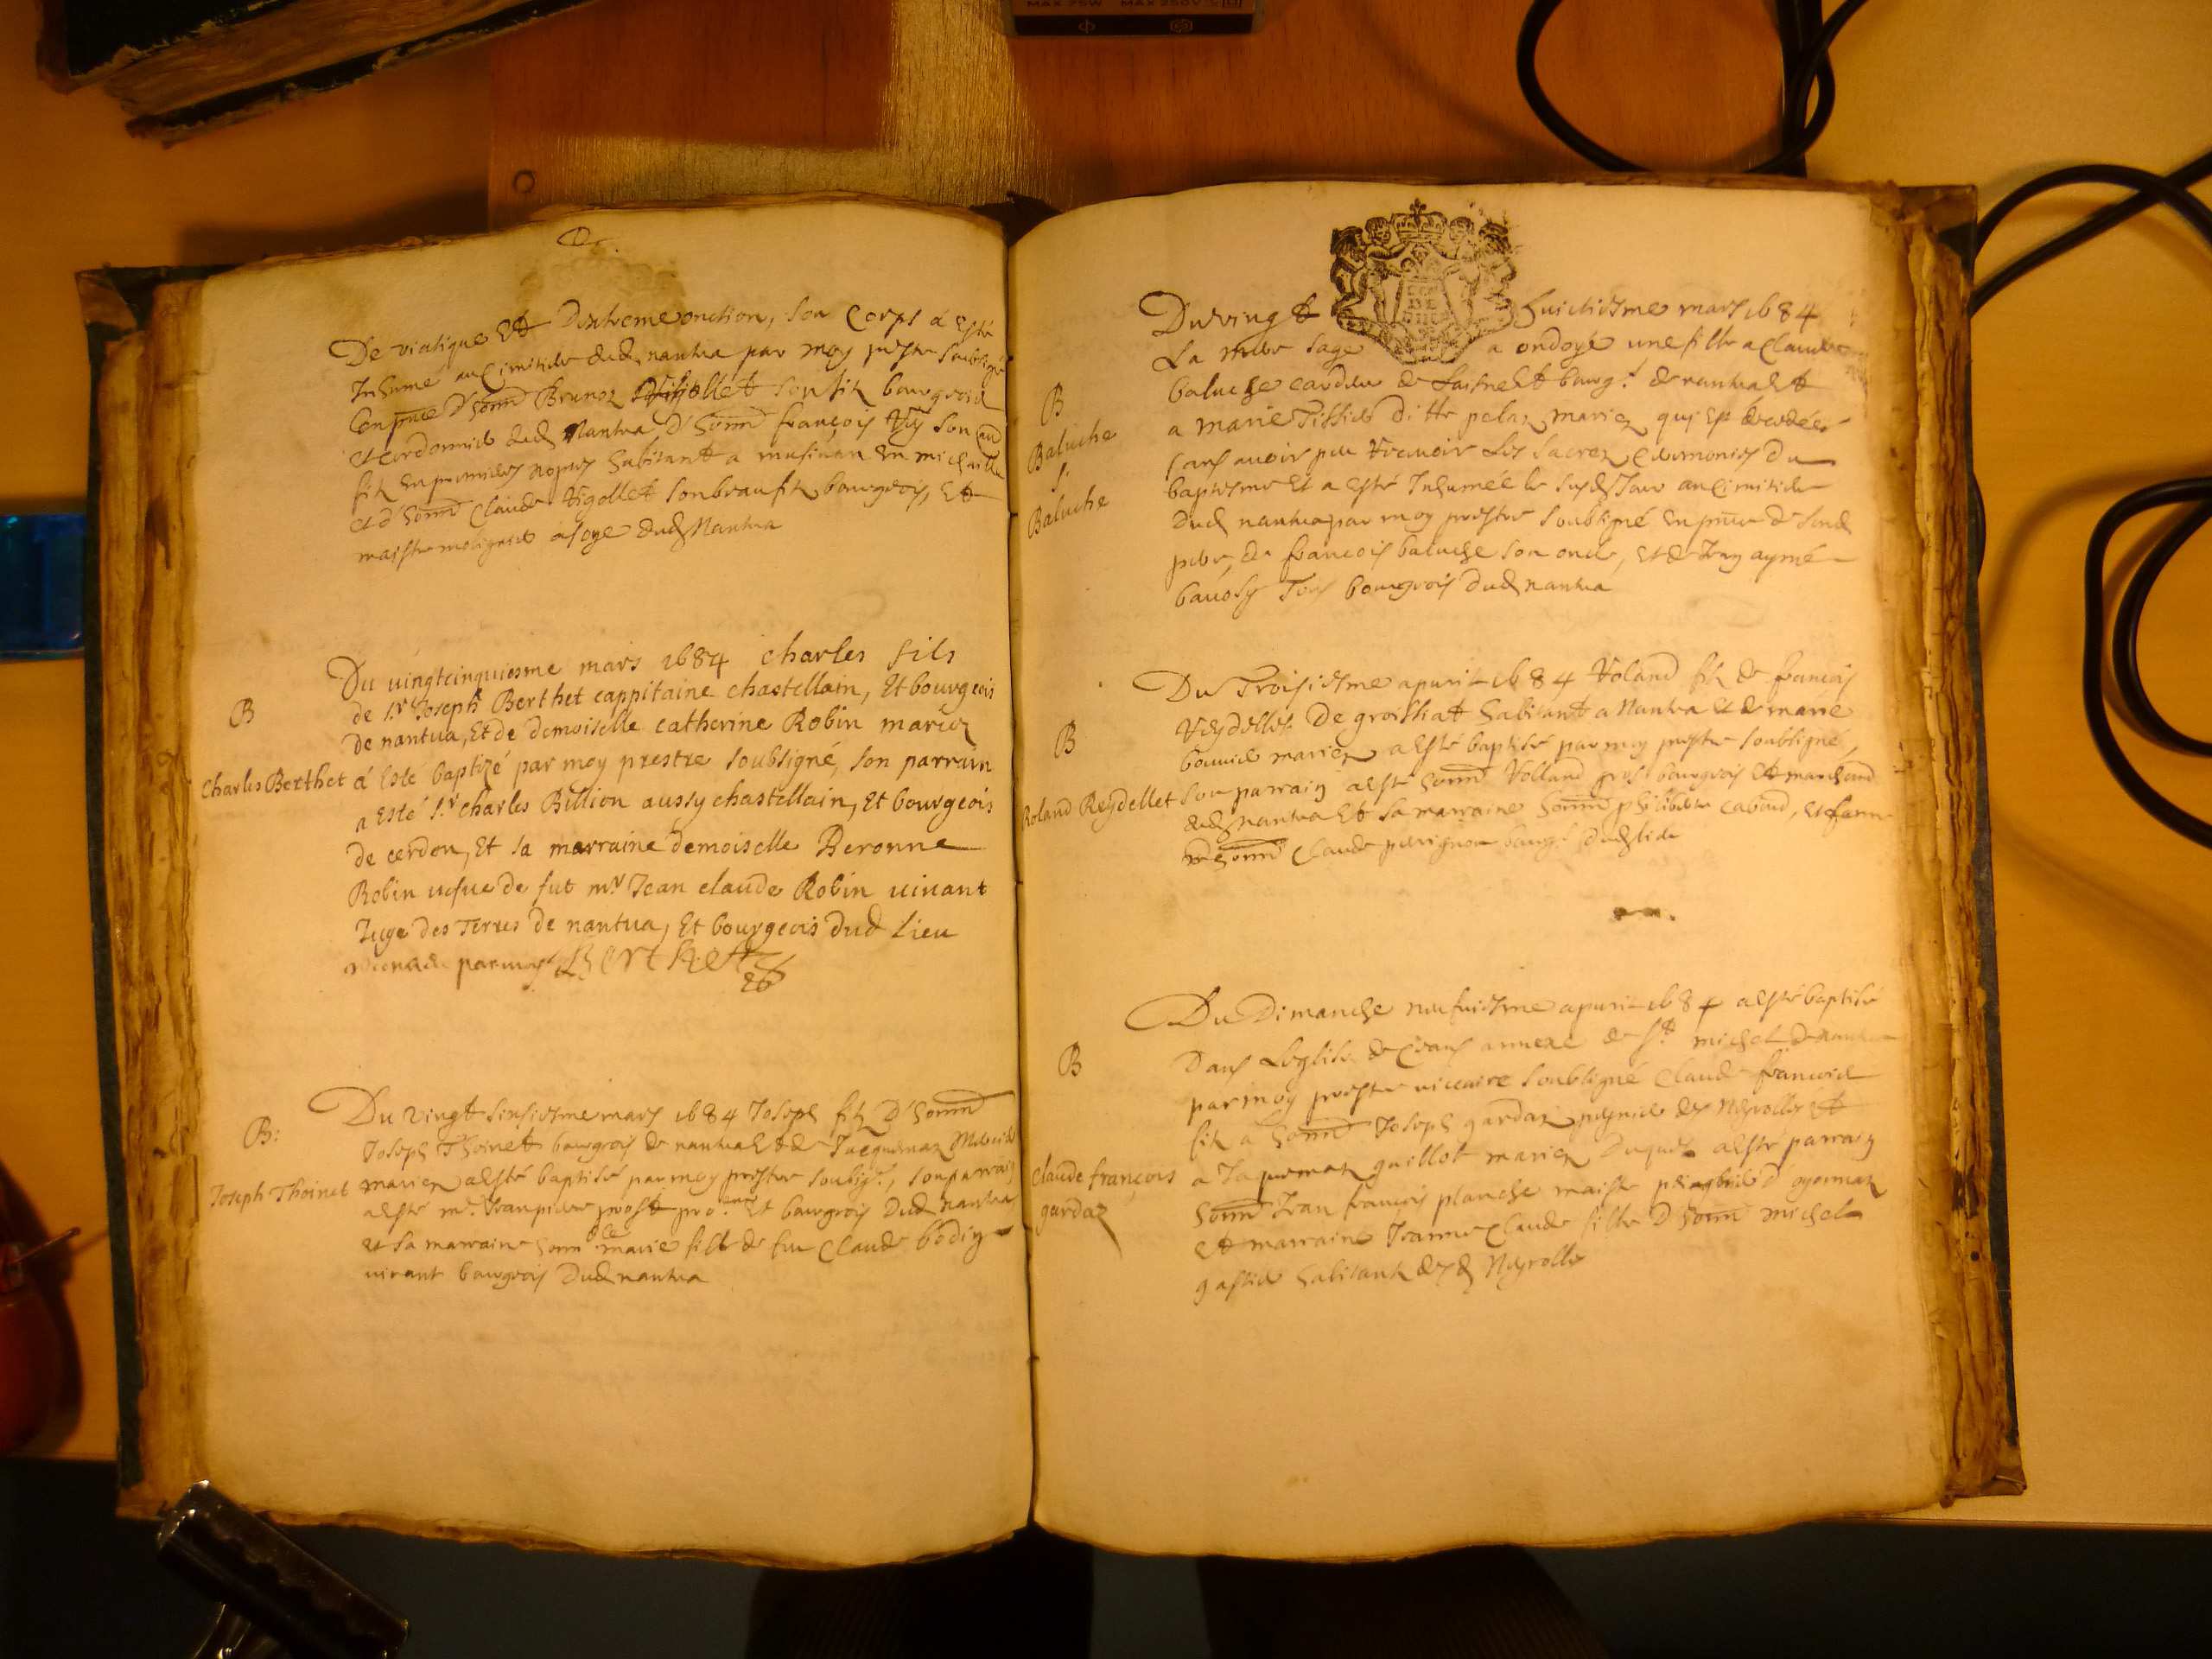 De viatique Et Dextreme onction, son Corps à Esté
Inhumé au Cimitiere dud. nantua par moy prestre soubsigné
En pnce D'honn. Brunoz son filz bourgeois
et cordonnier dud. Nantua D'honn. françois son
filz En premieres nopces habitant a musinan En michaille
et d'honn. Claude Vigollet son beaufilz bourgeois, Et
maistre dud. Nantua
B
Charles Berthet
Du uingtcinquiesme mars 1684 charles fils
de s.r Joseph Berthet cappitaine chastellain, Et bourgeois
de nantua, Et de demoiselle catherine Robin mariez
à Esté baptizé par moy prestre soubsigné, son parrain
a Esté s.r charles Billion aussy chastellain, Et bourgeois
de cerdon, Et sa marraine demoiselle Beronne
Robin uefue de fut m.r Jean claude Robin uiuant
Juge des Terres de nantua, Et bourgeois dud Lieu
par moy Berthet
B:
Joseph Thoinet
Du vingt sixiesme mars 1684 Joseph filz D'honn.
Joseph Thoinet bourgeois de nantua Et de Jacquemaz
mariez a esté baptisé par moy prestre soubsig.é, son parrain
a esté m.e Jean pierre prost pro.eur Et bourgeois Dud nantua
et sa marraine honn.ble marie fille de fu Claude bodin
uiuant bourgeois Dud nantua
B
Baluche
S.
Baluche
Du vingt huictiesme mars 1684
La mere sage a ondoyé une fille a Claude
baluche cardeur de bourg.s de nantua Et
a marie Tissier ditte pelaz mariez qui Est decedée
sans auoir peu Receuoir Les sacrez Ceremonies du
baptesme Et a esté Inhumée le susd. Jour au Cimitiere
Dud nantua par moy prestre soubsigné En pnce de sond.
pere, de francois baluche son oncle, et de Jean aymé
bauosy Tous bourgeois dud. nantua
B
Roland Reydellet
Du Troisiesme apuril 1684 Roland filz de francois
Reydellet De groissiat habitant a Nantua et de marie
bouuier mariez a esté baptisé par moy prestre soubsigné,
son parrain a esté honn. Rolland prost bourgeois Et marchand
dud. Nantua Et sa marraine honn. philiberte caboud, et femme
D'honn. Claude perrignon bourg.s dud. lieu
B
Claude françois
gardaz
Du Dimanche neufuiesme apuril 1684 a esté baptisé
Dans Leglise de Crans annexe de s.t michel de nantua
par moy prestre viccaire soubsigné Claude francois
filz a honn. Joseph gardaz des Neyrolles et
a Jaquemaz guillot mariez Duquel a esté parrain
honn. Jean francois planche maistre d'oyonnaz
Et marraine Jeanne Claude fille D'honn. michel
gassier habitant desd. Neyrolles